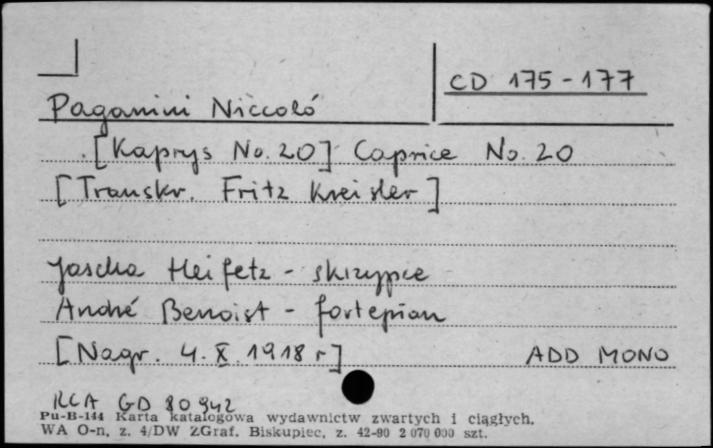 CD 175-177
Paganini Niccoló
[Kaprys No. 20] Caprice No. 20
[Transkr. Fritz Kreisler]
Jascha Heifetz - skrzypce
André Benoist - fortepian
[Nagr. 4. X. 1918 r]
ADD MONO
RCA GD 80942
Pu-B-144 Karta katalogowa wydawnictw zwartych i ciągłych.
WA O-n, z. 4/DW ZGraf. Biskupiec, z. 42-90 2 070 000 szt.